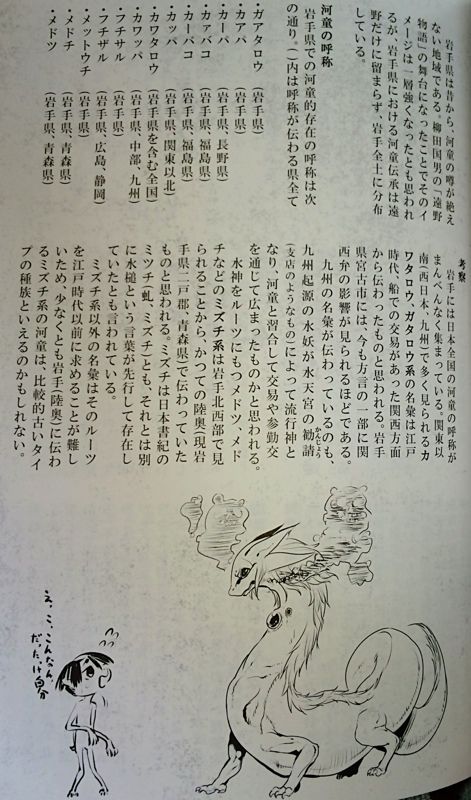 岩手県は昔から、河童の噂が絶え
ない地域である。柳田国男の「遠野
物語」の舞台になったことでそのイ
メージは一層強くなったとも思われ
るが、岩手県における河童伝承は遠
野だけに留まらず、岩手全土に分布
している。
河童の呼称
岩手県での河童的存在の呼称は次
の通り。()内は呼称が伝わる県全て
・ガァタロウ (岩手県)
・カァパ (岩手県)
・カーパ (岩手県、長野県)
・カァパコ (岩手県、福島県)
・カーパコ (岩手県、福島県)
・カッパ (岩手県、関東以北)
・カワタロウ (岩手県を含む全国)
・カワッパ (岩手県、中部、九州)
・フチサル (岩手県)
・フチザル (岩手県、広島、静岡)
・メットウチ (岩手県)
・メドチ (岩手県、青森県)
・メドツ (岩手県、青森県)
考察
岩手には日本全国の河童の呼称が
まんべんなく集まっている。関東以
南(西日本、九州)で多く見られるカ
ワタロウ、ガタロウ系の名彙は江戸
時代、船での交易があった関西方面
から伝わったものと思われる。岩手
県宮古市には、今も方言の一部に関
西弁の影響が見られるほどである。
九州の名彙が伝わっているのも、
九州起源の水妖が水天宮の勧請
かんじょう
(支店のようなもの)によって流行神と
なり、河童と習合して交易や参勤交
を通じて広まったものかと思われる。
水神をルーツにもつメドツ、メド
チなどのミズチ系は岩手北西部で見
られることから、かつての陸奥(現岩
手県二戸郡、青森県)で伝わっていた
ものと思われる。ミズチは日本書紀の
ミツチ(虬、ミズチ)とも、それとは別
に水槌という言葉が先行して存在し
ていたとも言われている。
ミズチ系以外の名彙はそのルーツ
を江戸時代以前に求めることが難し
いため、少なくとも岩手(陸奥)に伝わ
るミズチ系の河童は、比較的古いタイ
プの種族といえるのかもしれない。
え、こ、こんなん
だったけ自分